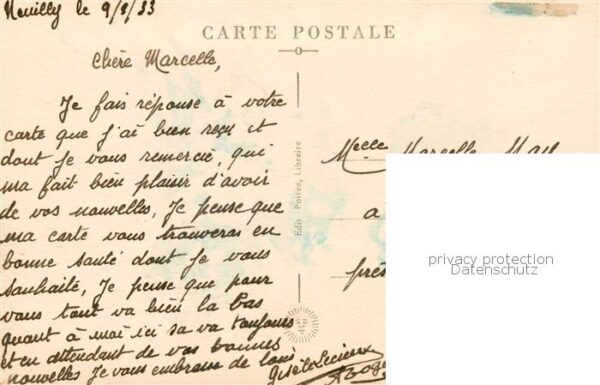 Neuilly le 9/8/33
CARTE POSTALE
Chère Marcelle,
Je fais réponse à votre
carte que j'ai bien reçu et
dont je vous remercie, qui
ma fait bien plaisir d'avoir
de vos nouvelles, Je pense que
ma carte vous trouveras en
bonne santé dont je vous
souhaite, Je pense que pour
vous tout va bien la bas
quant à moi ici sa va toujours
et en attendant de vos bonnes
nouvelles Je vous embrasse de loin
Gisèle
Edit. Poirée, Libraire
Melle Marcelle
a
près
privacy protection
Datenschutz